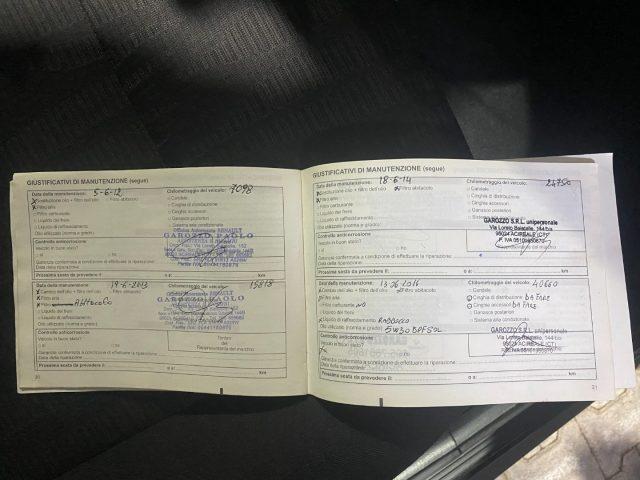 GIUSTIFICATIVI DI MANUTENZIONE (segue)
Data della manutenzione: 5-6-12
Chilometraggio del veicolo: 7098
Sostituzione olio + filtro dell'olio
Filtro abitacolo
Candele
Filtro aria
Cinghia di distribuzione
Filtro carburante
Cinghie accessori
Liquido dei freni
Ganasce posteriori
Liquido di raffreddamento
Olio utilizzato (norma e grado):
Controllo anticorrosione:
Veicolo in buon stato?
GAROZZO PAOLO
Garanzia confermata a condizione di effettuare la riparazione:
Data della riparazione:
Prossima sosta da prevedere il: o a: km
Data della manutenzione: 19-6-2013
Chilometraggio del veicolo: 15818
Cambio dell'olio + filtro dell'olio
Filtro aria
Liquido dei freni
Liquido di raffreddamento
GAROZZO PAOLO
Olio utilizzato (norma e grado):
Controllo anticorrosione
Veicolo in buon stato?
Timbro
del
Rappresentante del marchio
Garanzia confermata a condizione di effettuare la riparazione:
Data della riparazione:
Prossima sosta da prevedere il: o a: km
20
GIUSTIFICATIVI DI MANUTENZIONE (segue)
Data della manutenzione: 18-6-14
Chilometraggio del veicolo: 24750
Sostituzione olio + filtro dell'olio
Filtro abitacolo
Candele
Filtro aria
Cinghia di distribuzione
Filtro carburante
Cinghie accessori
Liquido dei freni
Ganasce posteriori
Liquido di raffreddamento
Olio utilizzato (norma e grado):
GAROZZO S.R.L. unipersonale
95024 ACIREALE (CT)
Controllo anticorrosione:
Veicolo in buon stato?
Garanzia confermata a condizione di effettuare la riparazione:
Data della riparazione:
Prossima sosta da prevedere il: o a: km
Data della manutenzione: 13-06-2016
Chilometraggio del veicolo: 40660
Cambio dell'olio + filtro dell'olio
Filtro abitacolo
Candele
Filtro aria
Cinghia di distribuzione DA FARE
Filtro carburante NO
Cinghie accessori DA FARE
Liquido dei freni
Ganasce posteriori
Liquido di raffreddamento RABBOCCO
Sistema aria condizionata
Olio utilizzato (norma e grado) 5W30 DPF
GAROZZO S.R.L. unipersonale
95024 ACIREALE (CT)
Controllo anticorrosione
Veicolo in buon stato?
Garanzia confermata a condizione di effettuare la riparazione:
Data della riparazione:
Prossima sosta da prevedere il: o a: km
21